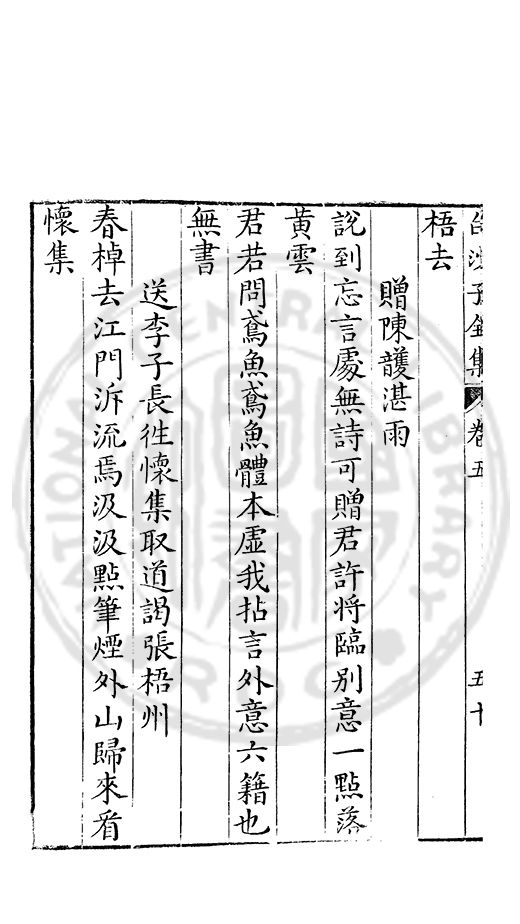 白沙子全集 卷五 五十
梧去
贈陳頀湛雨
說到忘言處無詩可贈君許將臨別意一點落
黃雲
君若問鳶魚鳶魚體本虛我拈言外意六籍也
無書
送李子長徃懷集取道謁張梧州
春棹去江門泝流焉汲汲點筆煙外山歸來看
懷集
NATIONAL CENTRAL LIBRARY